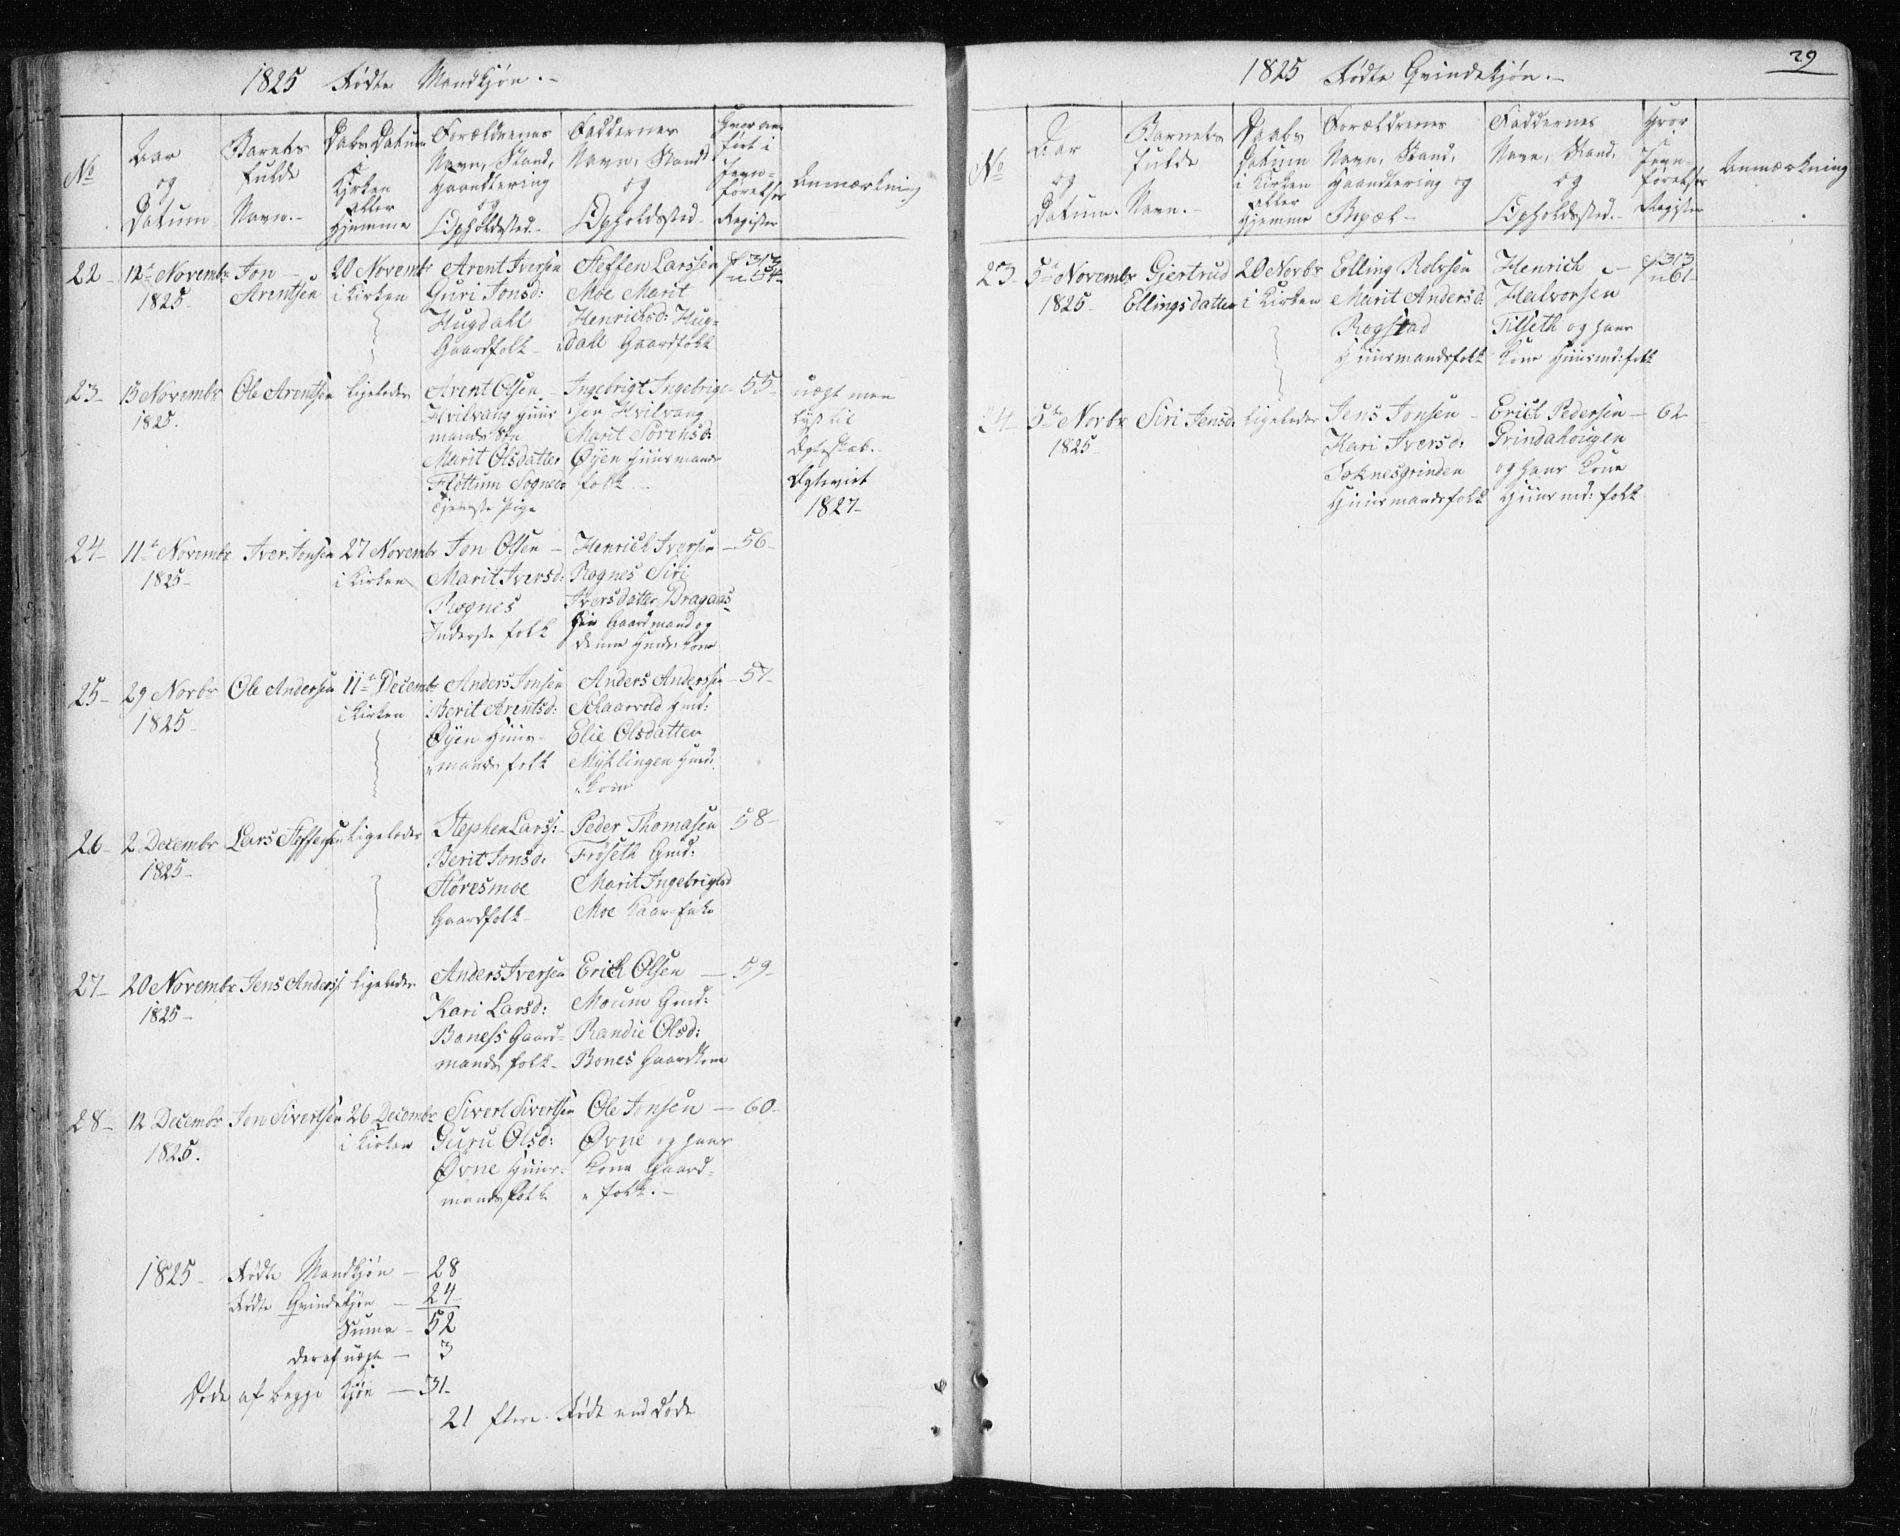 1825 Fødte Mandkjøn.-
No
Aar
og
Datum
Barnets
fulde
Navn.-
Daabs Datum
i
Kirken
eller
Hjemme
Forældrenes
Navn, Stand,
Haandtering
og
Opholdssted-
Faddernes
Navn, Stand
og
Opholdssted-
Hvor an-
ført i
Jevn-
førelses
Register
Anmærkning
22- 12te Novembr
1825-
Jon-
Arentsen
20 Novembr
i Kirken
Arent Iversen
Guri Jonsd:
Hugdahl
Gaardfolk-
Steffen Larssen
Moe Marit
Henrichsd: Hug-
dahl Gaardfolk
f 313
n 54-
23- 13 Novembr
1825.
Ole Arentsen
Ligeledes
Arent Olsen-
Hvilvang Huus
mands Søn
Marit Olsdatter
Flottum Sogneds
Tjeneste Pige
Ingebrigt Ingebrigt-
sen Hvilvang
Marit Sørensd:
Øyen Huusmands
folk
-55-
uægt men
lyst til
Ægteskab.-
Ægteviet
1827-
24- 11te Novembr
1825-
Iver Jonsen
27 Novembr
i Kirken
Jon Olsen-
Marit Iversd:
Rognes
Inderste folk
Henrich Iversen
Rognes Siri
Iversdatter Dragaas
hiin Gaardmand og
denne Huusm: Kone
-56-
25- 29 Novbr
1825-
Ole Andersen
11te Decembr
i Kirken
Anders Jonsen
Berit Arentsd:
Øyen Huus-
mands folk
Anders Anderssen
Schaarvold Gmd:
Elie Olsdatter
Myklingen Huusm:
Kone
-57-
26- 2 Decembr
1825-
Lars Steffensen
Ligeledes
Stephen Larss:
Berit Jonsd:
Støresmoe
Gaardfolk-
Peder Thomasen
Frøseth Gmd:
Marit Ingebrigtsd
Moe
58-
27- 20 Novembr
1825-
Jens Anders:
Ligeledes
Anders Iversen
Kari Larsd:
Boness Gaard-
mands folk-
Erich Olsen
Moum Gmd:
Randie Olsd:
Bones Gaardkone
-59-
28- 12 Decembr
1825.
Jon Sivertsen
26 Decembr
i Kirken
Sivert Sivertsen
Guru Olsd:
Øvne Huus-
mandsfolk
Ole Jonsen
Øvne og hans
Kone Gaard-
folk.-
-60-
1825- Fødte Mandkjøn - 28
Fødte Qvindekjøn - 24
Suma - 52
deraf uægte - 3
Døde af begge Kjøn - 31-
21 flere Født end Døde
29
1825 Fødte Qvindekjøn.-
No
Aar
og
Datum.
Barnets
fulde
Navn.-
Daabs
Datum
i Kirken
eller
Hjemme
Forældrenes
Navn, Stand,
Haandtering og
Bopæl-
Faddernes
Navn, Stand,
og
Opholdssted.-
Hvor
i
Jevn-
førelses
Register
Anmærkning
23- 5te Novembr
1825-
Gjertrud
Ellingsdatter
20 Novbr
i Kirken
Elling Rolvsen
Marit Andersd:
Rogstad
Huusmandsfolk
Henrich
Halvorsen
Tilseth og hans
Kone Huusmd: folk
f 313
n 61-
24- 5te Novbr
1825-
Siri Jensd:
Ligeledes
Jens Jonsen-
Kari Iversd:
Soknesgrinden
Huusmandsfolk
Erich Pedersen
Grindahougen
og hans Kone
Huusmd: folk
-62-